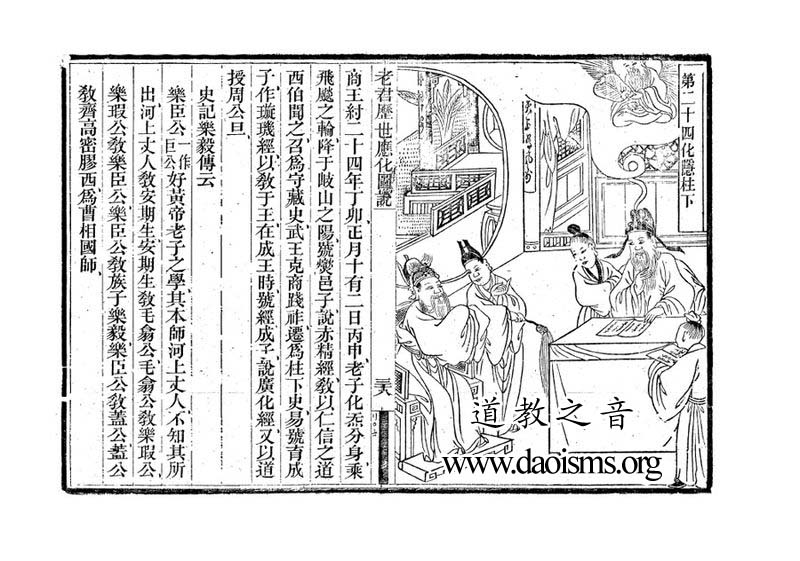 第二十四化隱柱下
老君歷世應化圖說
商王紂二十四年丁卯正月十有二日丙申老子化炁分身乘
飛飈之輪降于岐山之陽號燮邑子說赤精經敎以仁信之道
西伯聞之召爲守藏史武王克商踐祚遷爲柱下史易號育成
子作璇璣經以敎于王在成王時號經成子說廣化經又以道
授周公旦
史記樂毅傳云
樂臣公一作巨公好黃帝老子之學其本師河上丈人不知其所
出河上丈人敎安期生安期生敎毛翕公毛翕公敎樂瑕公
樂瑕公敎樂臣公樂臣公敎族子樂毅樂臣公敎蓋公蓋公
敎齊高密膠西爲曹相國師
道教之音
www.daoisms.org